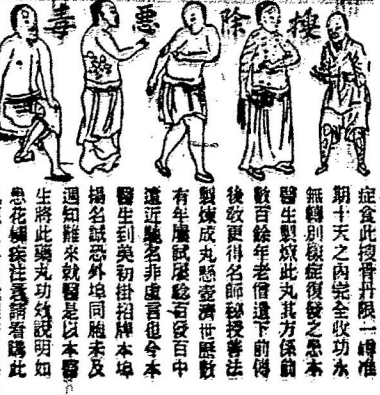 搜除惡毒
症食此搜骨丹限一樽准
期十天之內完全收功永
無轉別樣症復發之患本
醫生製煉此丸其方係前
數百餘年老僧遺下前傳
後教更得名師秘授善法
製煉成丸懸壺濟世歷數
有年屢試屢驗百發百中
遠近馳名非虛言也今本
醫生到美初掛招牌本埠
揚名誠恐外埠同胞未及
週知難來就醫是以本醫
生將此藥丸功效說明如
患花柳症注意請看購此